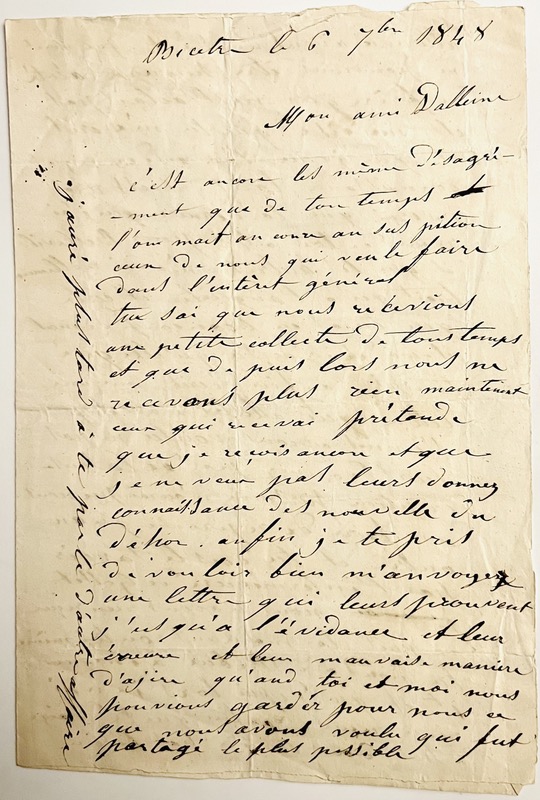 Bicetre le 6 7bre 1848
Mon ami Dalleine
c'est ancore les même désagré-
-ment que de ton temps et
l'on mait an core an sus pition
ceux de nous qui veule faire
dans l'intèrêt général
tu sai que nous recévions
une petite collecte de tous temps
et que de puis lors nous ne
recevons plus rien maintenent
ceux qui recevai prétende
que je reçois ancore et que
je ne veux pas leurs donnez
connaissance des nouvelle du
déhor. anfin je te pris
de vouloir bien m'anvoyer
une lettre qui leurs prouvent
j'usqu'a l'évidance et leur
érreure et leur mauvaise maniere
d'ajire qu'and toi et moi nous
pouvions gardér pour nous ce
que nous avons voulu qui fut
partagé le plus possible
j'auré plus tard à te parlé d'autre affaire